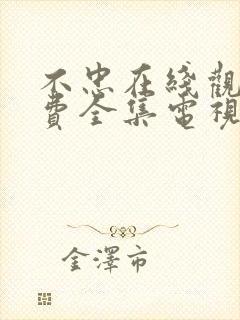 不忠在綫觀
費全集電視
金澤市